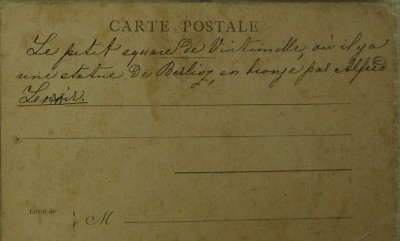 CARTE POSTALE
Le petit square de Vintimille, où il y a
une statue de Berlioz, en bronze par Alfred
Lenoir.
Envoi de
M